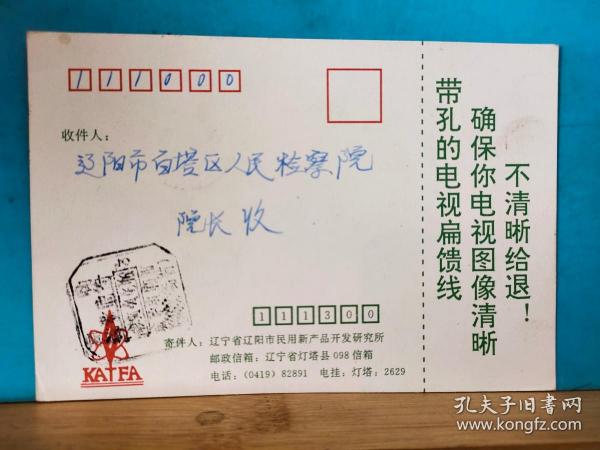 111000
收件人：
辽阳市白塔区人民检察院
院长 收
111300
寄件人：辽宁省辽阳市民用新产品开发研究所
邮政信箱：辽宁省灯塔县098信箱
电话：（0419）82891 电挂：灯塔：2629
KATFA
不清晰给退！
确保你电视图像清晰
带孔的电视扁馈线
孔夫子旧书网
www.kongfz.com